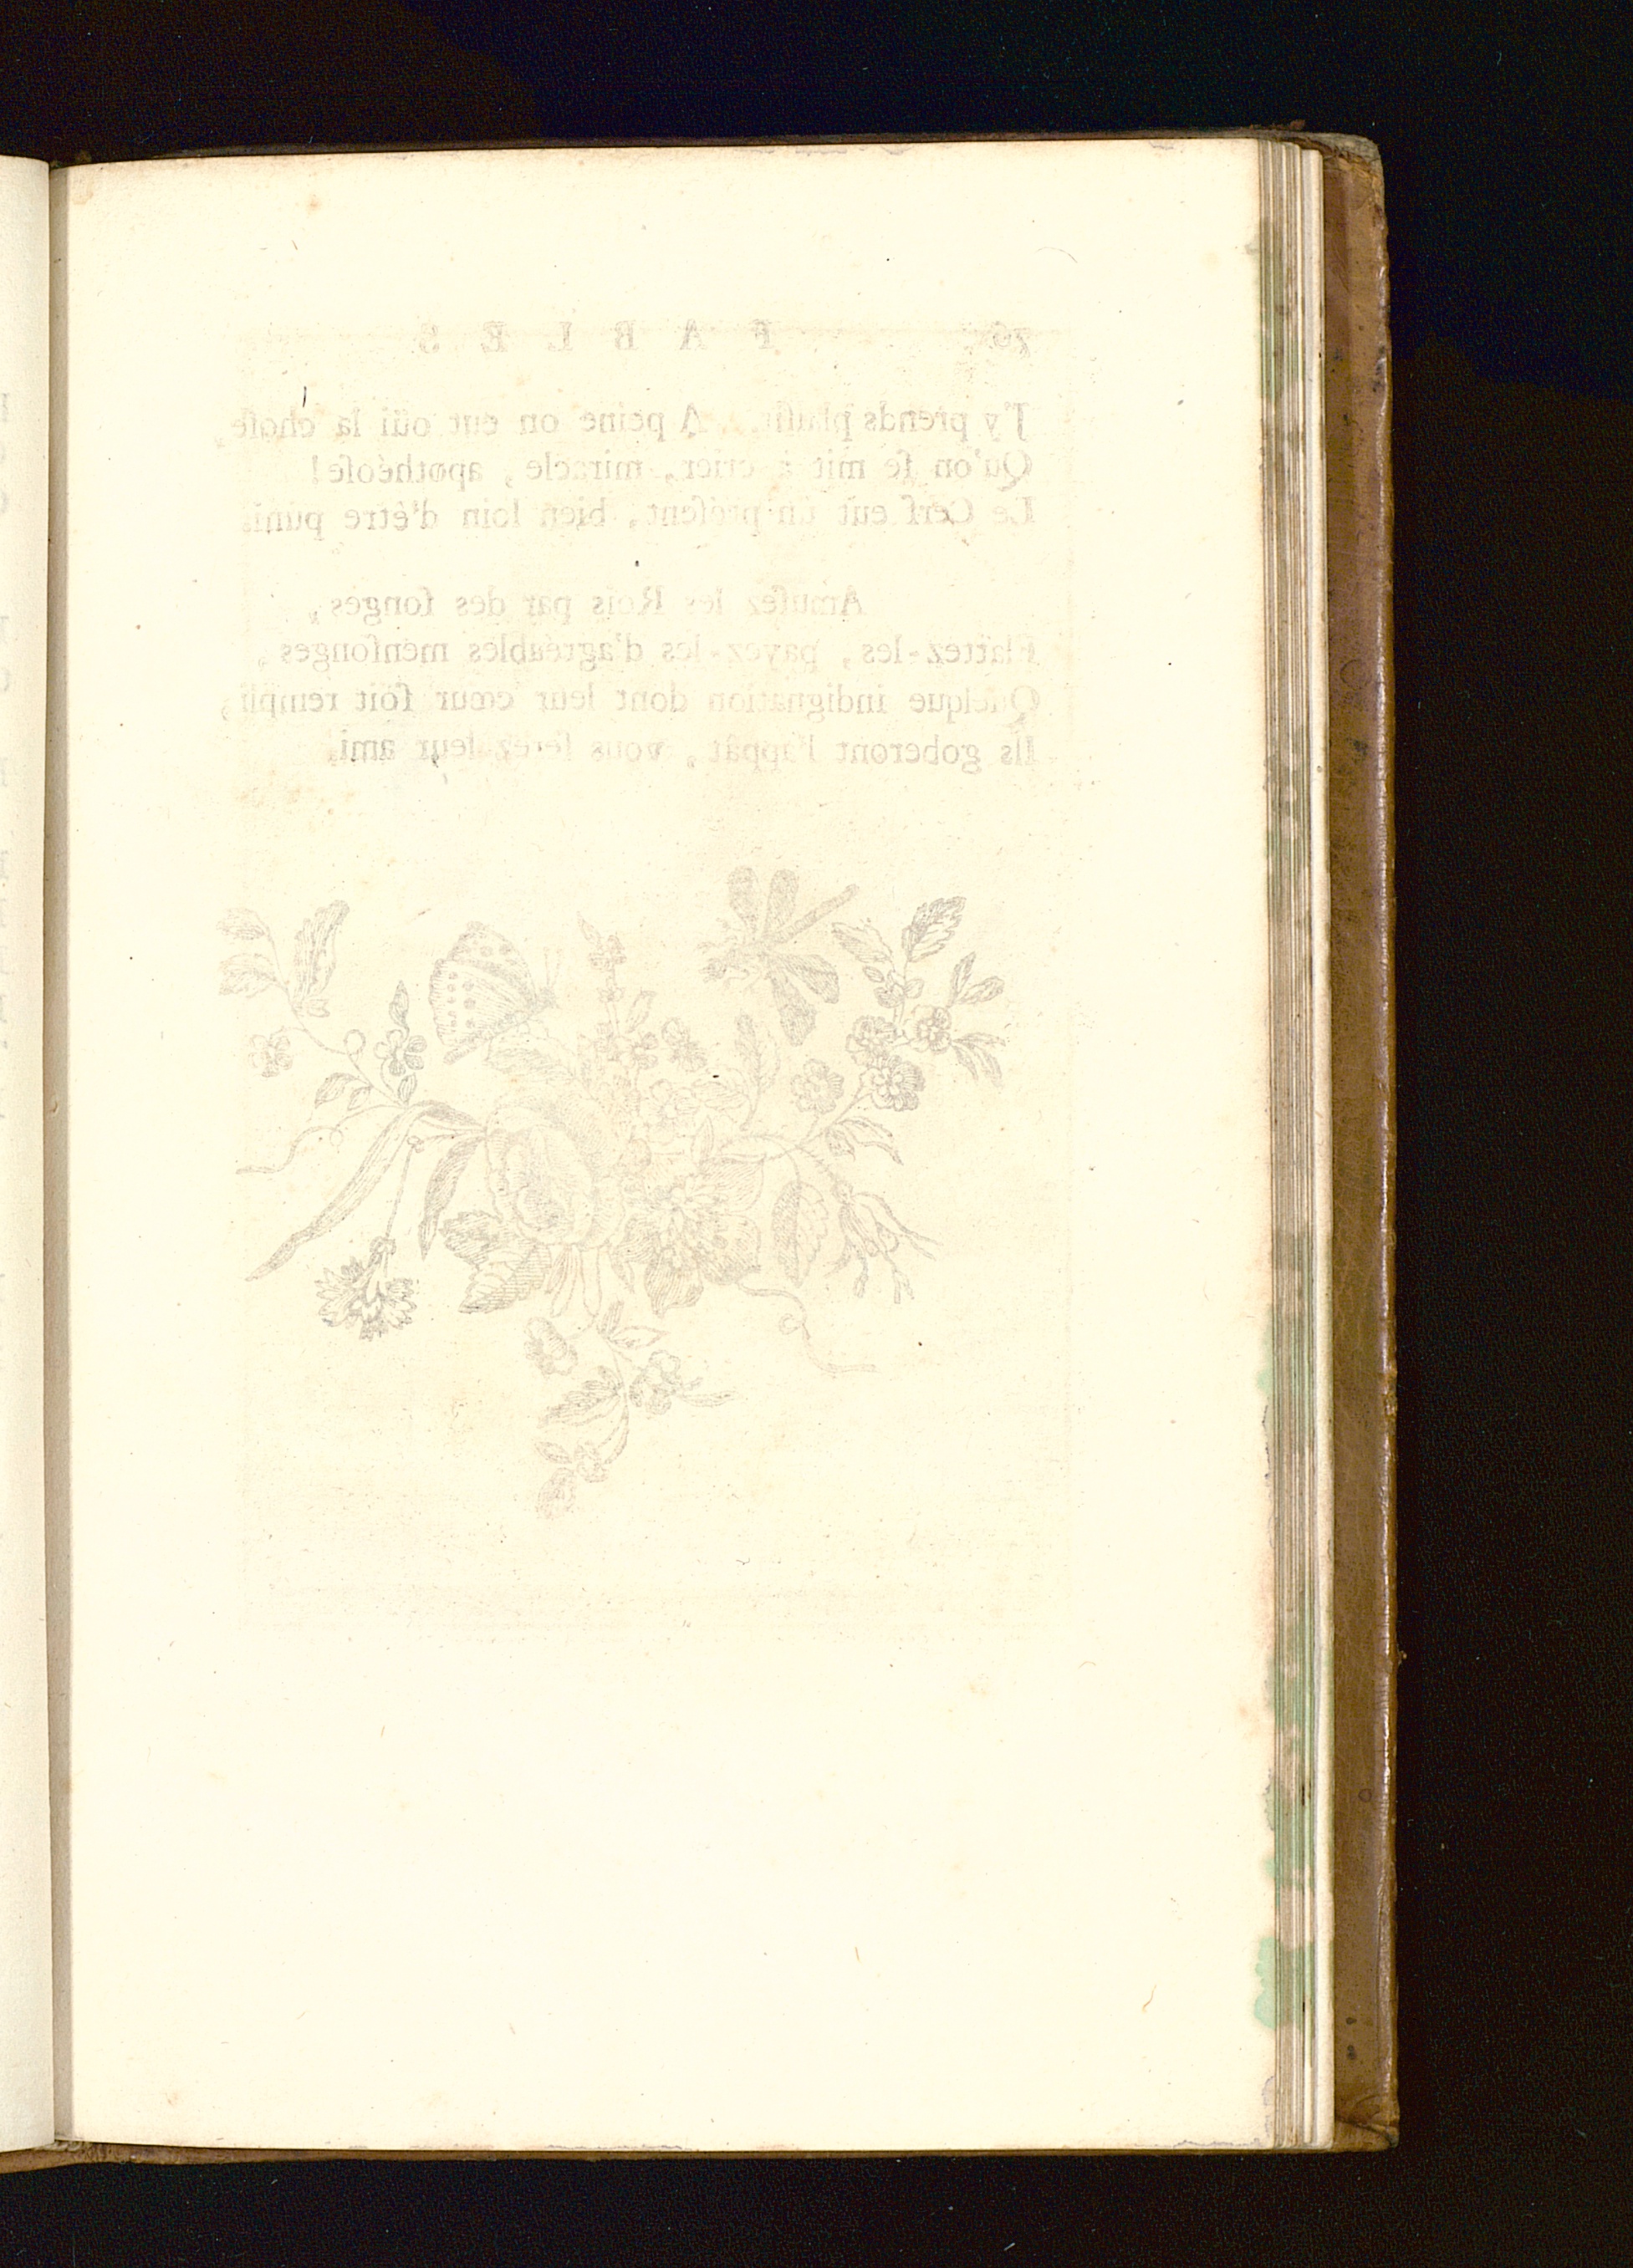 76 FABLES
J'y prends plaiſir. A peine on eut oüi la choſe,
Qu'on ſe mit à crier, miracle, apothéoſe!
Le Cerf eut un préſent, bien loin d'être puni.
Amuſez les Rois par des ſonges,
Flattez-les, payez-les d'agréables menſonges,
Quelque indignation dont leur cœur ſoit rempli,
Ils goberont l'appât, vous ſerez leur ami.